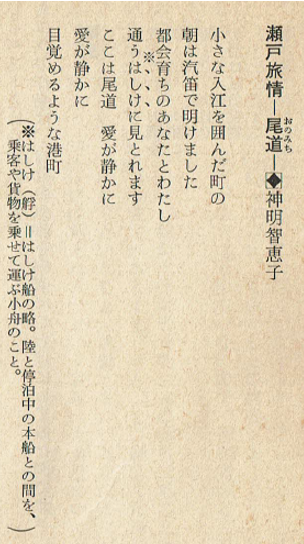 瀬戸旅情―尾道―◆神明智恵子
おのみち
小さな入江を囲んだ町の
朝は汽笛で明けました
都会育ちのあなたとわたし
※、、、
通うはしけに見とれます
ここは尾道　愛が静かに
愛が静かに
目覚めるような港町
(※はしけ（艀）＝はしけ船の略。陸と停泊中の本船との間を、
乗客や貨物を乗せて運ぶ小舟のこと。)